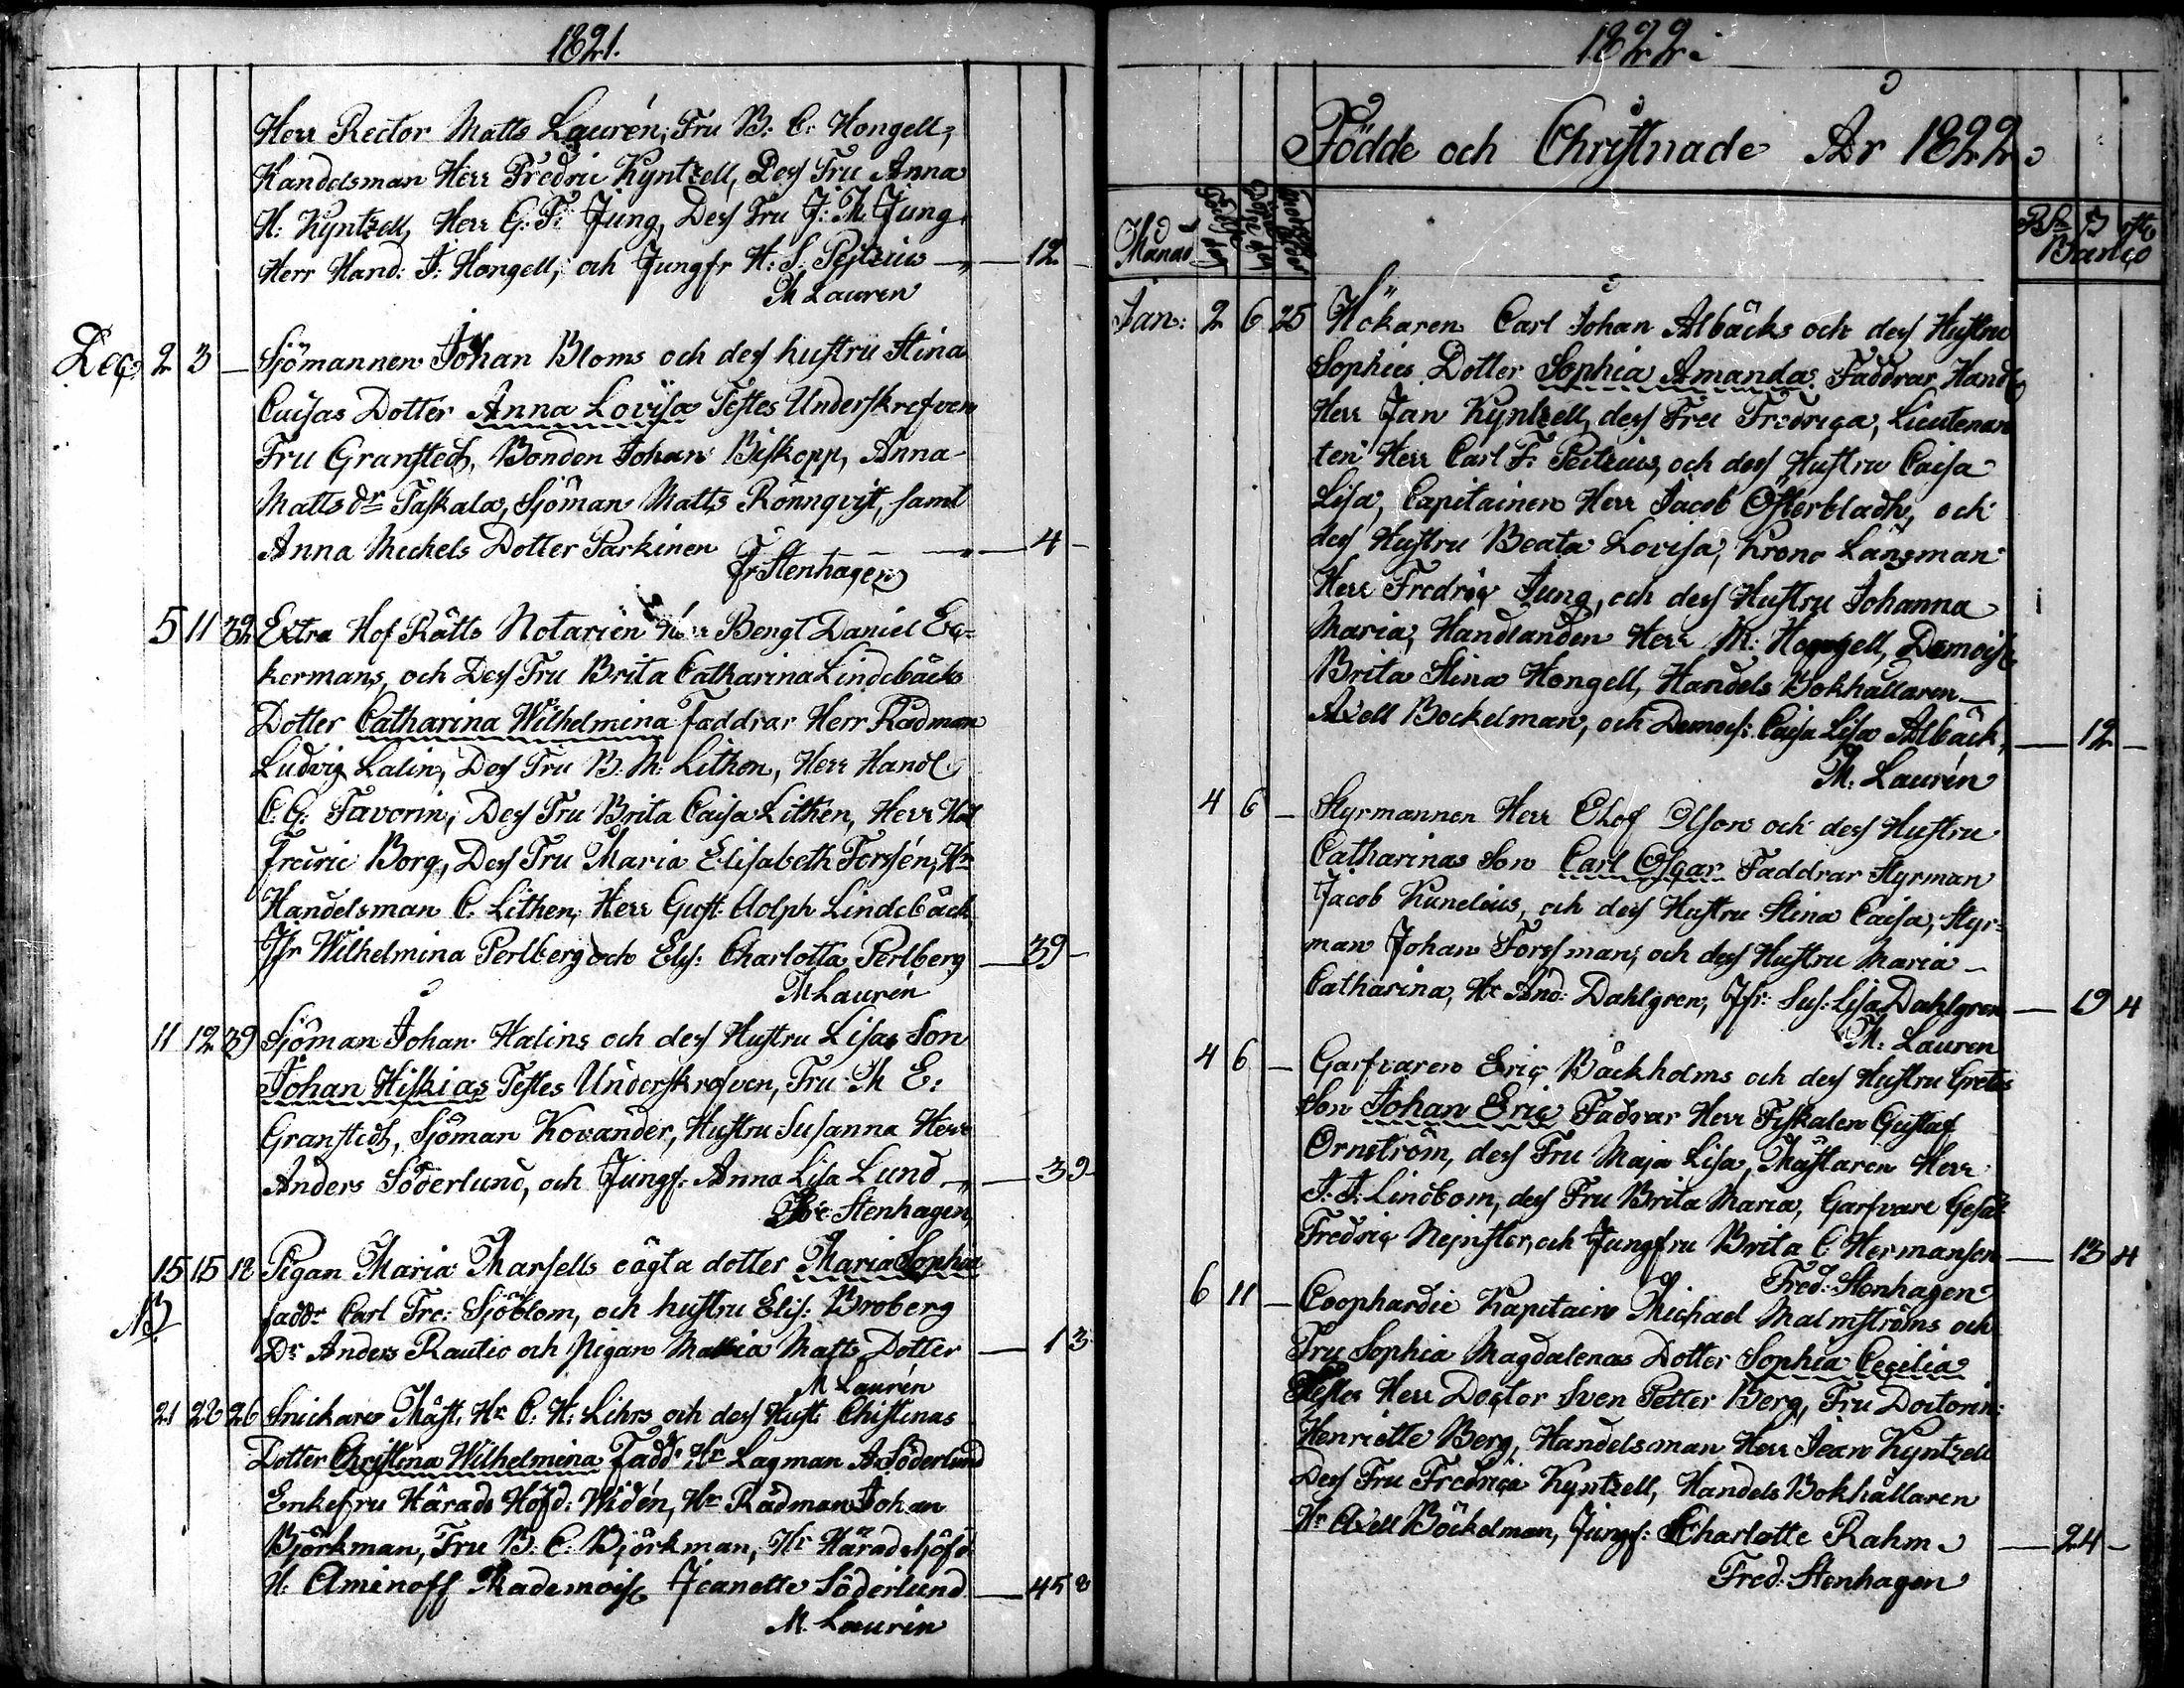 1821.
Herr Rector Matts Laurén, Fru B: C: Hongell,
Handelsman Herr Fredric Kyntzell, Dess Fru Anna
H: Kyntzell, Herr G: F: Jung, Dess Fru J: M: Jung
Herr Hand: J: Hongell, och Jungfr H: S: Peitzius — 12
M Lauren
Dec 2 3 — Sjömannen Johan Bloms och dess hustru Stina
Caisas Dotter Anna Lovisa Testes Underskrefven
Fru Granstedt, Bonden Johan Biskopp, Anna
Matts dr Taskala, Sjöman Matts Rönnqvist, samt
Anna Michels Dotter Parkinen — 4 —
Fr Stenhagen
5 11 32 Extra Hof Rätts Notarien Herr Bengt Daniel Ec=
kermans, och Dess Fru Brita Catharina Lindebäcks
Dotter Catharina Wilhelmina Faddrar Herr Rådman
Ludvig Lalin, Dess Fru B. M: Lithen, Herr Handl
C. G: Favorin, Dess Fru Brita Caisa Lithen, Herr Hdl
Fredric Borg, Dess Fru Maria Elisabeth Forssén, Hr
Handelsman C. Lithen, Herr Gust: Adolph Lindebäck
Jfr Wilhelmina Perlberg och Elis: Charlotta Perlberg — 39 —
M Laurén
11 12 39 Sjöman Johan Halins och dess Hustru Lisas Son
Johan Hiskias Testes Underskrefven, Fru M E:
Granstedt, Sjöman Kovander, Hustru Susanna Herr
Anders Söderlund, och Jungf: Anna Lisa Lund — 39
Stenhagen
15 15 18 Pigan Maria Marsells oägta dotter Maria Sophia
NB faddr Carl Fre: Sjöblom, och hustru Elis: Broberg
Dr Anders Rautio och Pigan Maria Matts Dotter — 1 3
M Laurén
21 28 26 Snickare Mäst: Hr C. H: Lihrs och dess Hust: Christinas
Dotter Christina Wilhelmina Fadd: Hr Lagman A Söderlund
Enkefru Härads Höfd: Widén, Hr Rådman Johan
Björkman, Fru B: C: Björkman, Hr Häradshöfd
H: Aminoff Mademois Jeanette Söderlund — 45 8
M. Laurén
1822.
Födde och Christnade År 1822.
Månad
Banco
Jan: 2 6 25 Hökaren Carl Johan Albäcks och dess Hustru
Sophies Dotter Sophia Amanda Faddrar Handl
Herr Jan Kyntzell, dess Fru Fredriqa, Lieutenan
ten Herr Carl F. Peitzius, och dess Hustru Caisa
Lisa, Capitainen Herr Jacob Österbladh, och
dess Hustru Beata Lovisa, Krono Länsman
Herr Fredriq Jung, och dess Hustru Johanna
Maria, Handlanden Herr M: Hongell, Demois
Brita Stina Hongell, Handels Bokhållaren —
Axell Bockelman, och Demois: Caisa Lisa Albäck, — 12 —
M. Laurén
4 6 — Styrmannen Herr Olof Olsons och dess Hustru
Catharinas Son Carl Osgar Faddrar Styrman
Jacob Kunelius, och dess Hustru Stina Caisa, Styr=
man Johan Forssman, och dess Hustru Maria —
Catharina, Hr And: Dahlgren, Jfr: Sus: Lisa Dahlgren — 19 4
M: Lauren
4 6 — Garfvaren Eriq Bäckholms och dess Hustru Gretas
Son Johan Eriq Fadrar Herr Fiskalen Gustaf
Ornström, dess Fru Maja Lisa, Mästaren Herr
J: J: Lindbom, dess Fru Brita Maria, Garfvare Gesäll
Fredriq Nejister, och Jungfru Brita C Hermanson — 13 4
Fred: Stenhagen
6 11 — Coophardie Kapitain Michael Malmströms och
Fru Sophia Magdalenas Dotter Sophia Cecilia
Testes Herr Doctor Sven Petter Berg, Fru Doctorin:
Henriette Berg, Handelsman Herr Jean Kyntzell
Dess Fru Fredriqa Kyntzell, Handels Bokhållaren
Hr Axell Böckelman, Jungf: Charlotte Rahm. — 24 —
Fred: Stenhagen